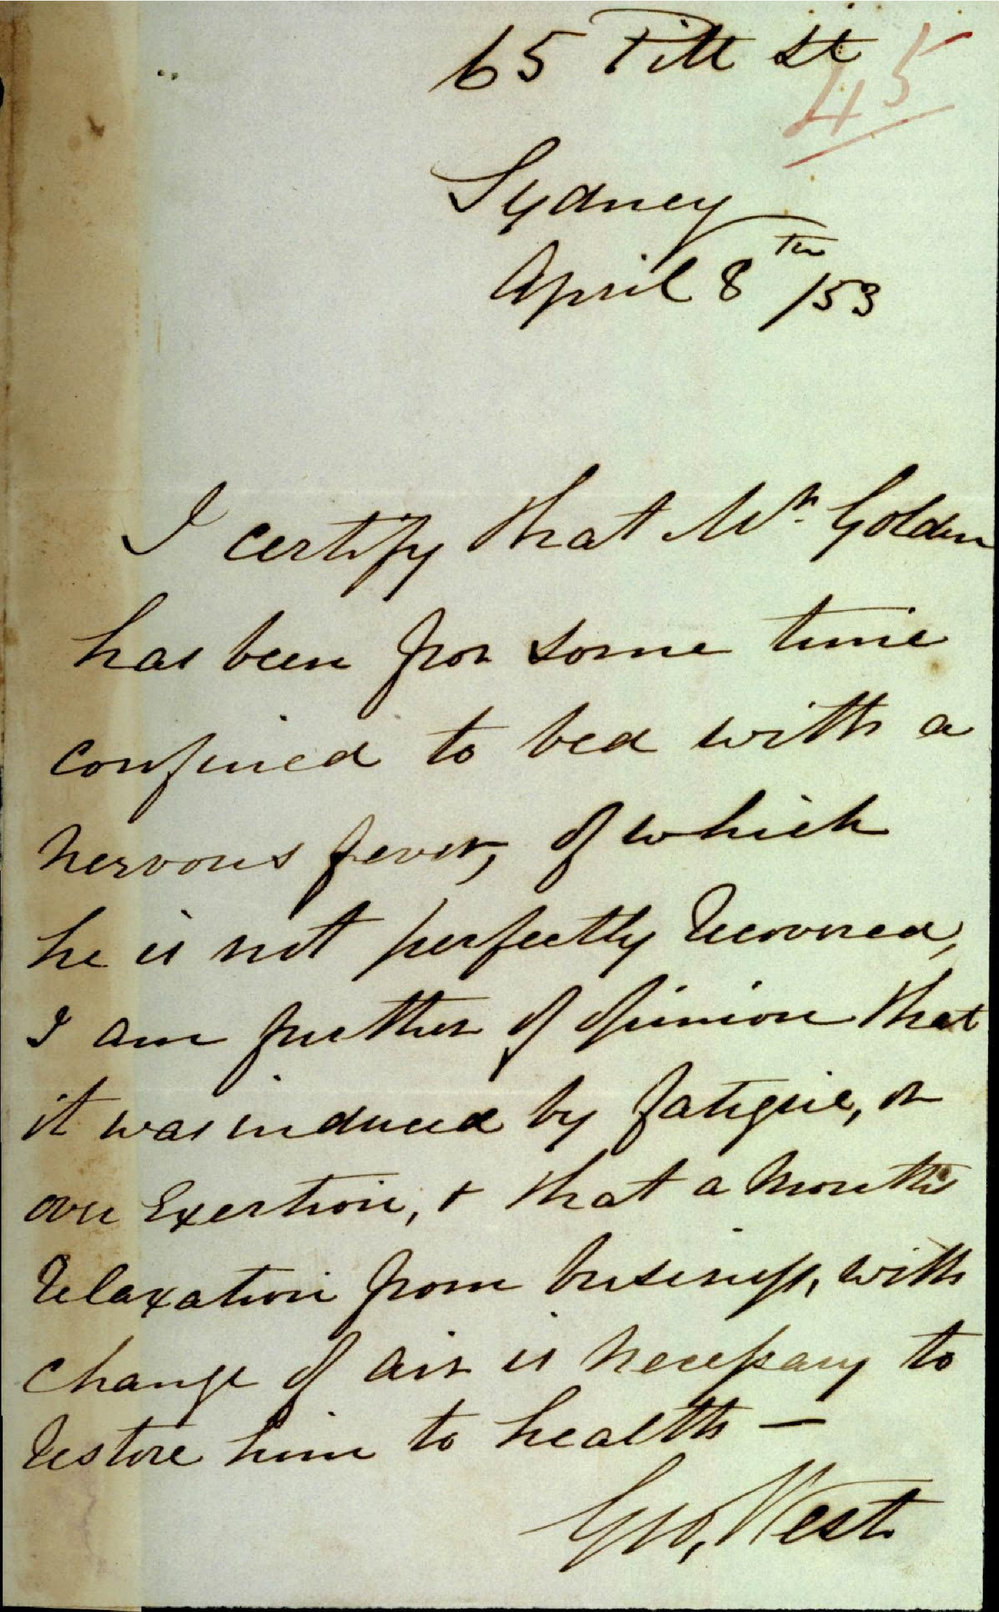 65 Pitt St
45
Sydney
April 8th /53
I certify that Mr. Golden
has been for some time
confined to bed with a
nervous fever, of which
he is not perfectly recovered,
I am further of opinion that
it was induced by fatigue, or
over exertion, & that a months
relaxation from business, with
change of air is necessary to
restore him to health —
Geo, West